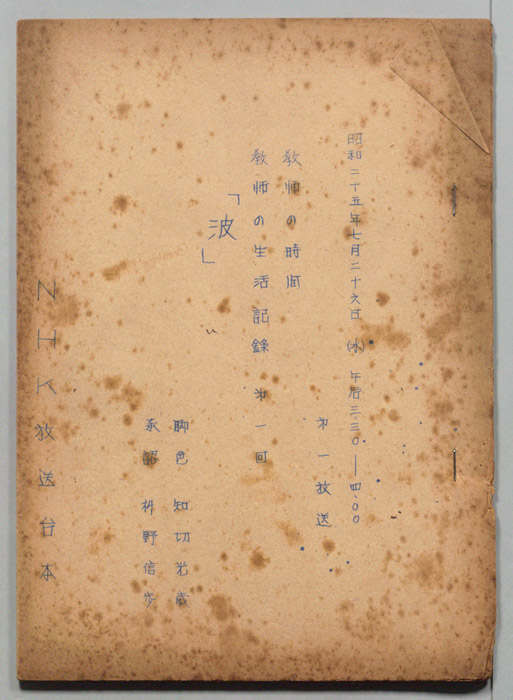 昭和二十五年七月二十六日(水)午后三三〇—四、〇〇
第一放送
教师の時间
教师の生活記録 第一回
「波」
脚色 知切光歳
承認 枡野信歩
NHK放送台本